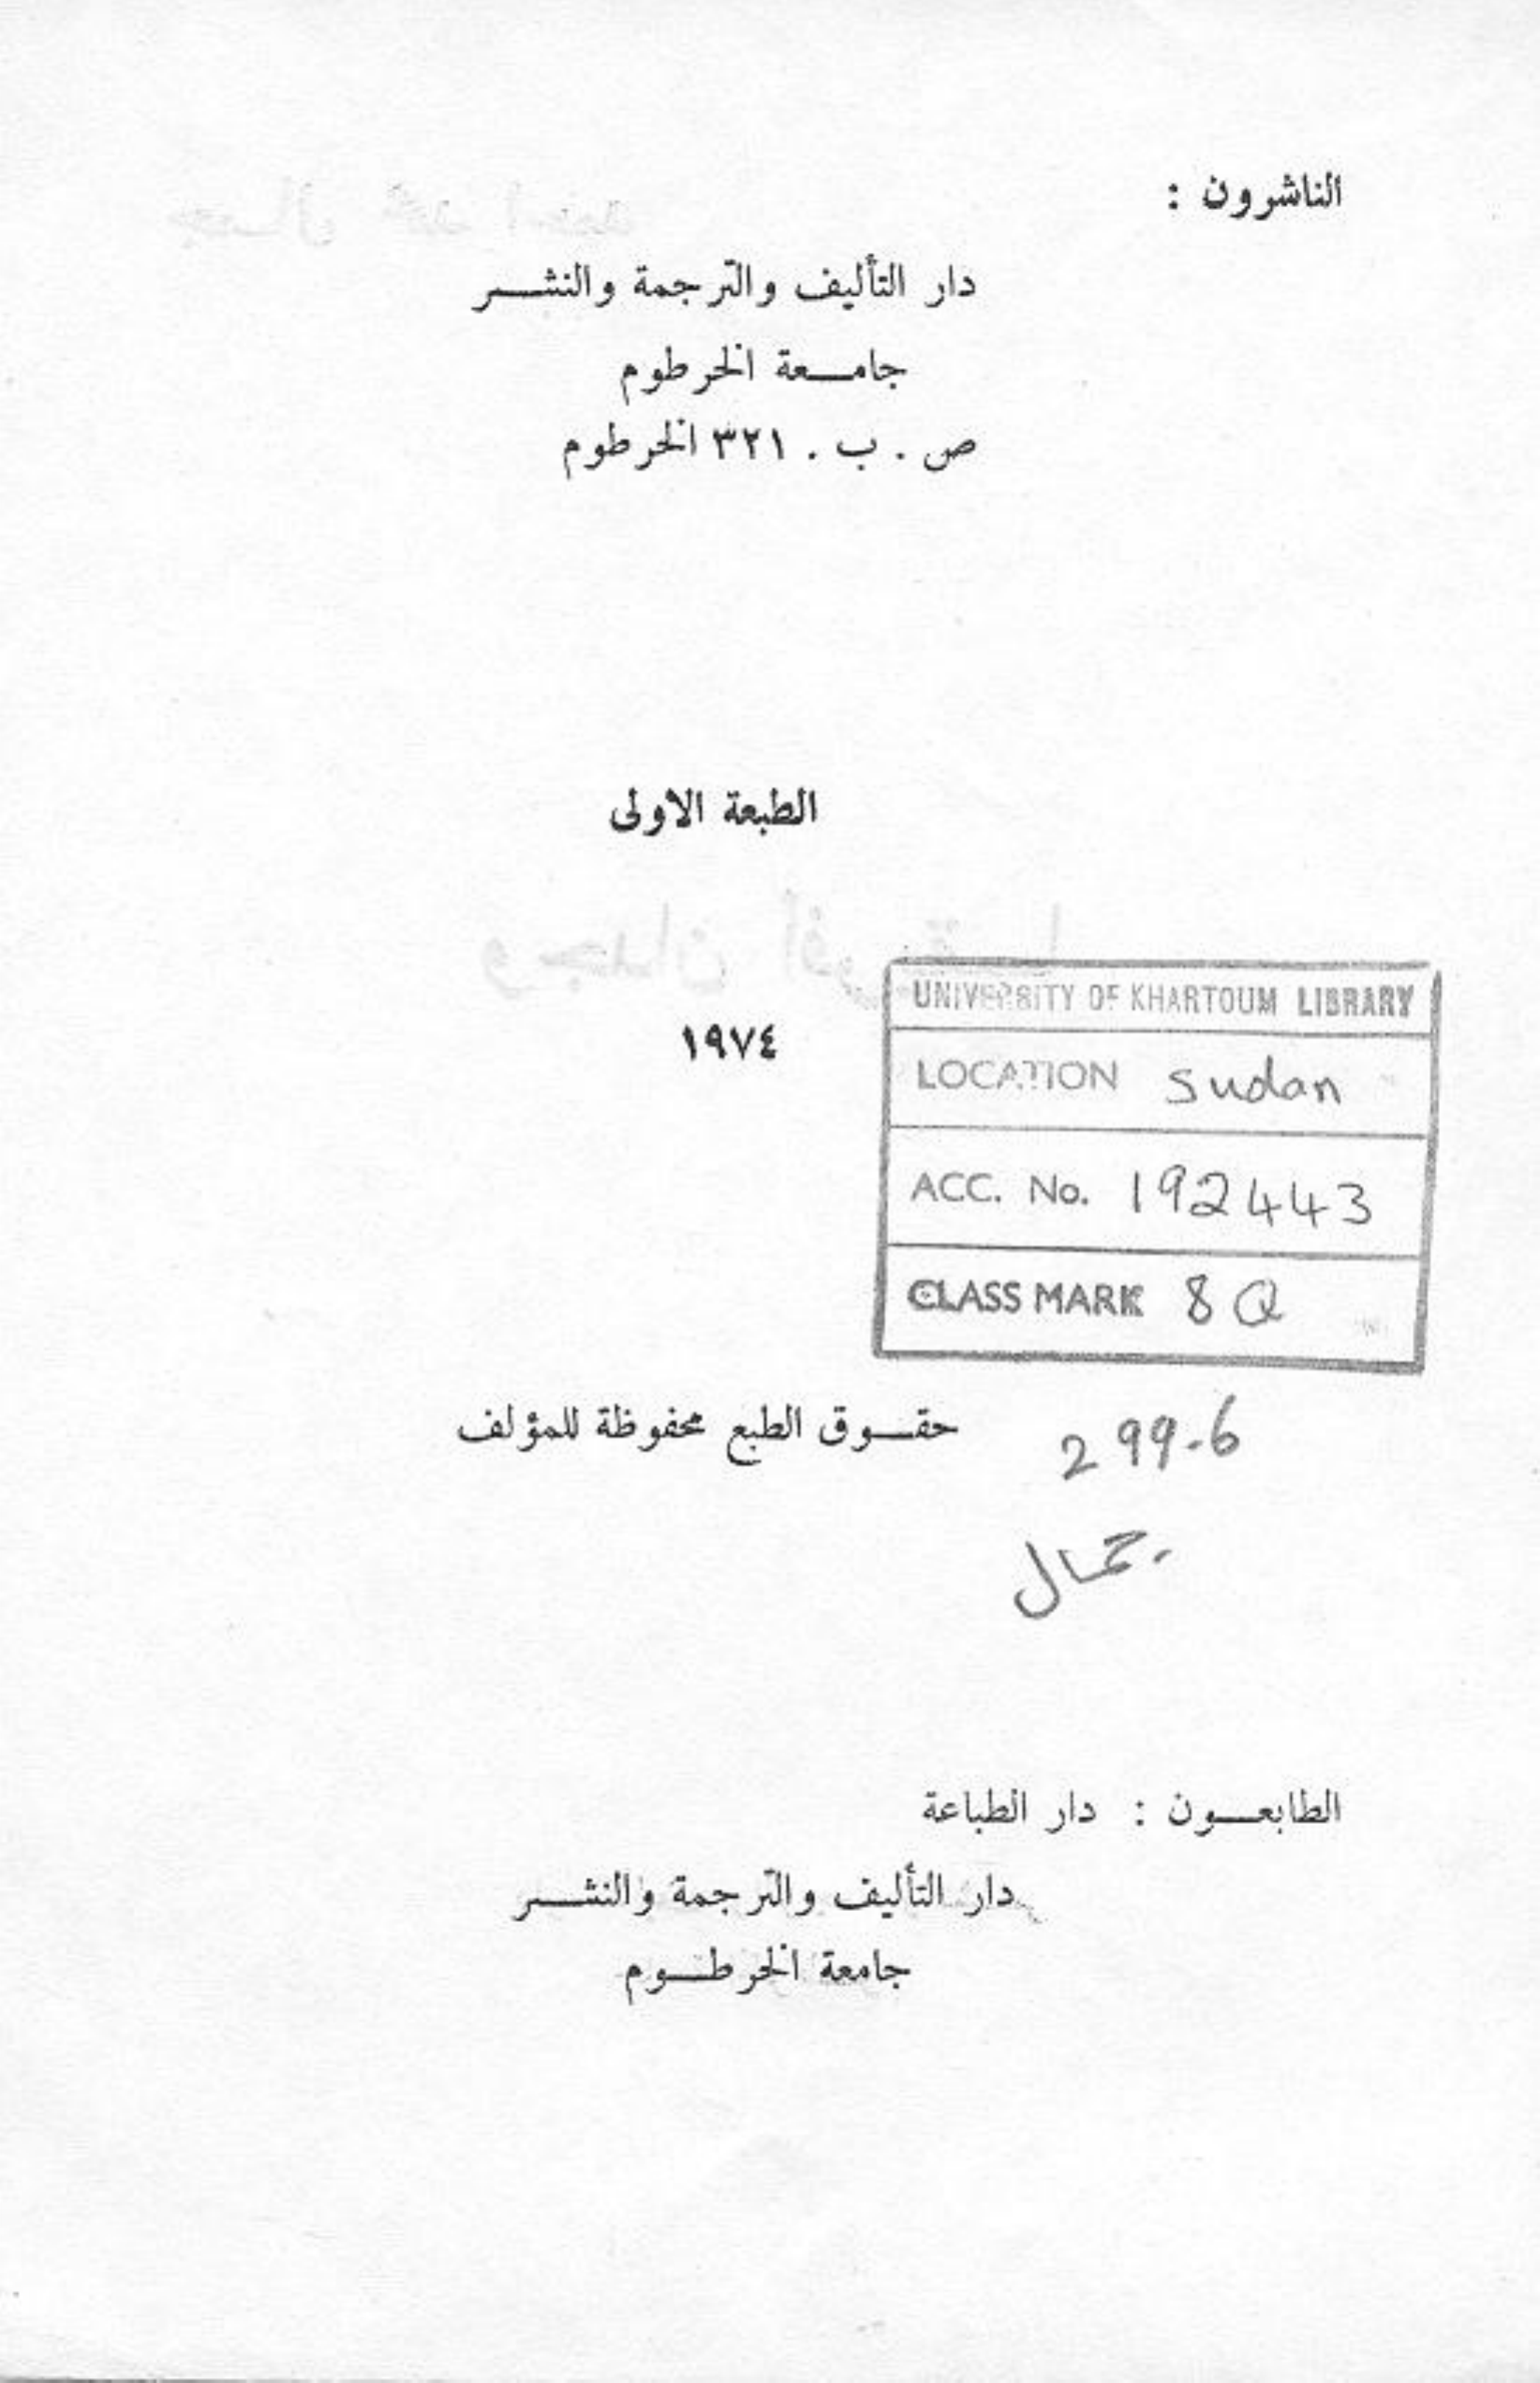 الناشرون :
دار التأليف والترجمة والنشر
جامعة الخرطوم
ص . ب . ٣٢١ الخرطوم
الطبعة الاولى
١٩٧٤
UNIVERSITY OF KHARTOUM LIBRARY
LOCATION Sudan
ACC. No. 192443
CLASS MARK 8Q
299.6
جمال
حقوق الطبع محفوظة للمؤلف
الطابعون : دار الطباعة
دار التأليف والترجمة والنشر
جامعة الخرطوم